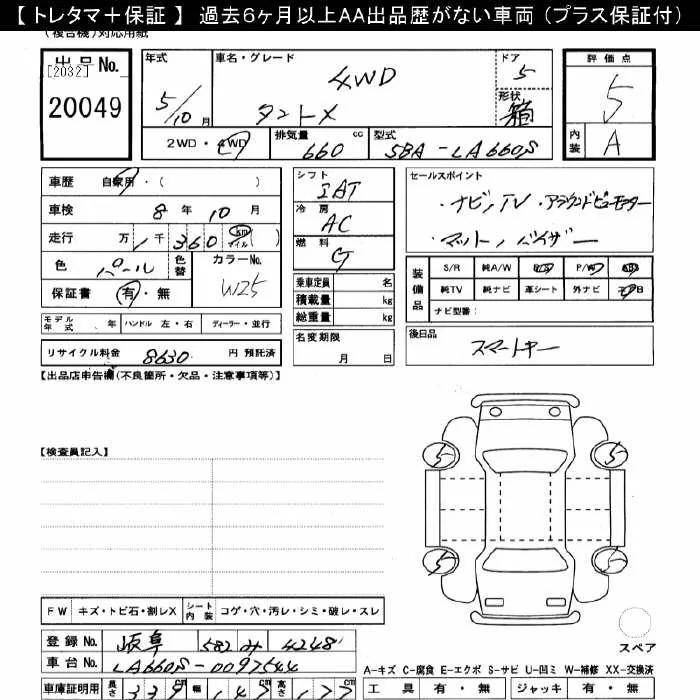 【 トレタマ＋保証 】 過去6ヶ月以上AA出品歴がない車両 （プラス保証付）
(複合機)対応用紙
出品No. [2032] 20049
年式 5/10月
車名・グレード 4WD タントX
ドア 5
形状 箱
評価点 5
内装 A
2WD・4WD
排気量 660 cc
型式 5BA-LA660S
車歴 自家用・( )
車検 8年 10月
走行 万 1千360 km マイル ( )
色 パール
色替
カラーNo. W25
保証書 有・無
シフト IAT
冷房 AC
燃料 G
乗車定員 名
積載量 kg
総重量 kg
セールスポイント
・ナビ/TV・アラウンドビューモニター
・マット・バイザー
装備品 S/R 純A/W P/S P/W ABS
純TV 純ナビ 革シート 外ナビ エアB
ナビ型番：
モデル年式 、年 ハンドル 左・右 ディーラー・並行
名変期限 月 日
後日品 スマートキー
リサイクル料金 8630 円 預託済
【出品店申告欄(不良箇所・欠品・注意事項等)】
【検査員記入】
5 5
5 5
スペア
FW キズ・トビ石・割レX シート内装 コゲ・穴・汚レ・シミ・破レ・スレ
登録No. 岐阜 582 み 4248
車台No. LA660S-0097544
A-キズ C-腐食 E-エクボ S-サビ U-凹ミ W-補修 XX-交換済
車庫証明用 長さ 339cm 幅 147cm 高さ 175cm
工具 有・無 ジャッキ 有・無